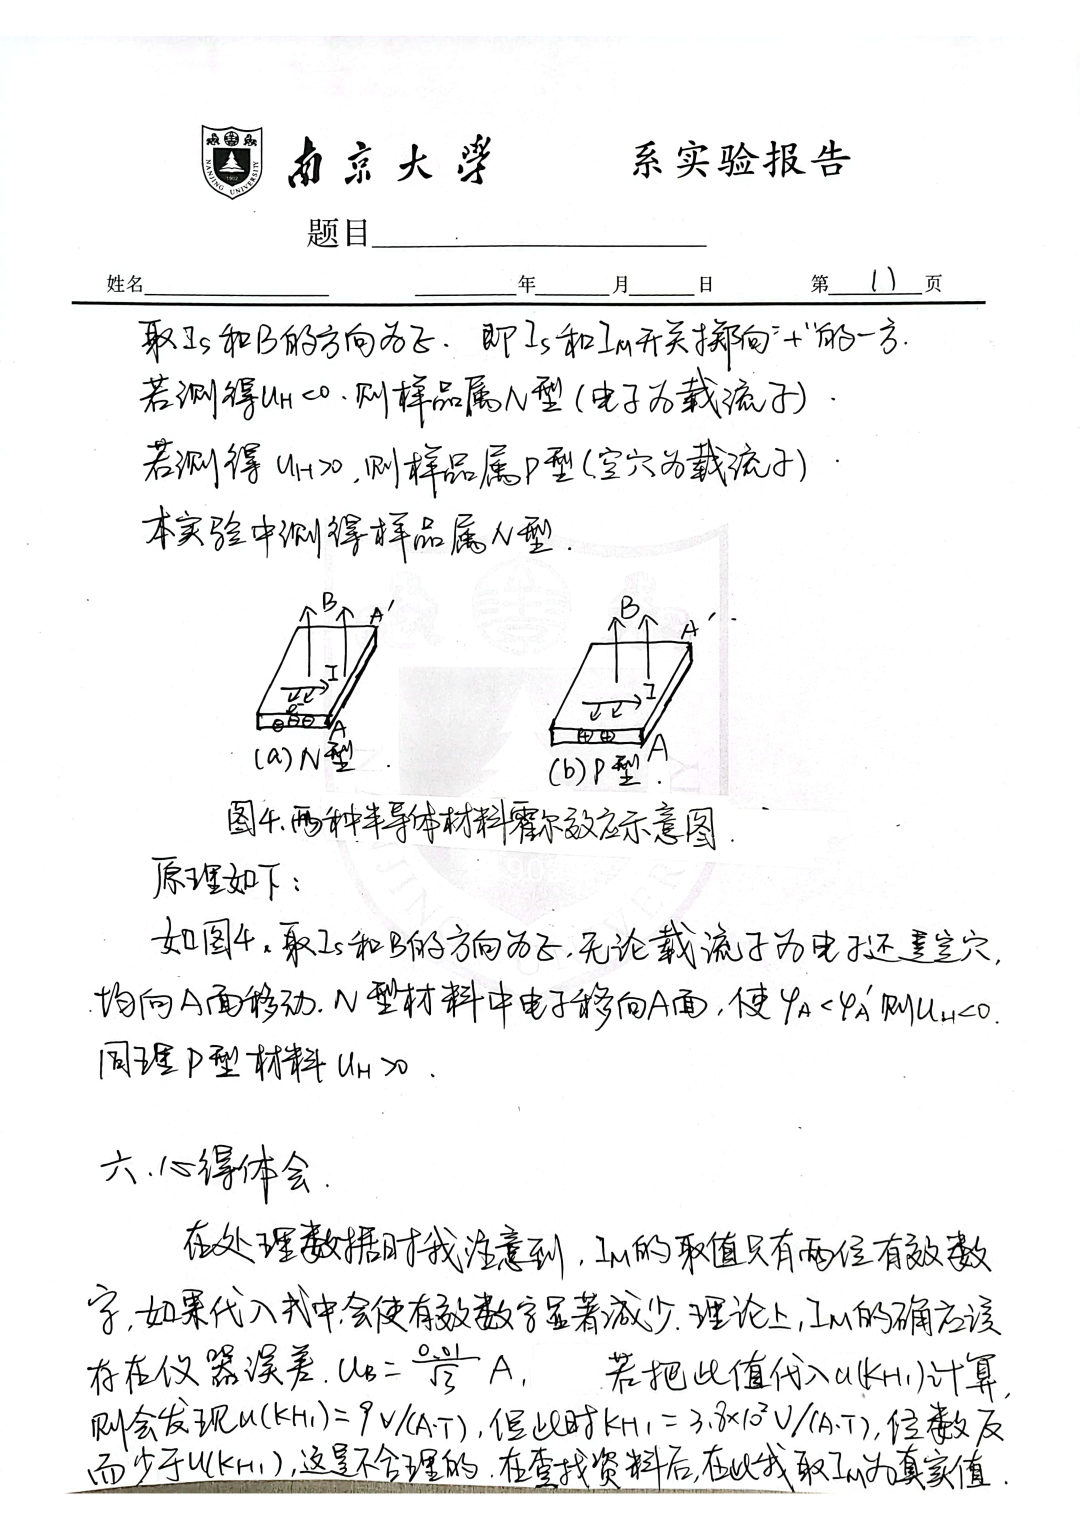 南京大学 系实验报告
题目
姓名 年 月 日 第 11 页
取Is和B的方向为正. 即Is和IM开关掷向"+"的一方.
若测得UH<0.则样品属N型(电子为载流子).
若测得UH>0,则样品属P型(空穴为载流子)
本实验中测得样品属N型.
B A' B A'
I I
A A
(a)N型. (b)P型.
图4.两种半导体材料霍尔效应示意图.
原理如下:
如图4.取Is和B的方向为正.无论载流子为电子还是空穴,
均向A面移动.N型材料中电子移向A面,使φA<φA'则UH<0.
同理P型材料UH>0.
六.心得体会.
在处理数据时我注意到,IM的取值只有两位有效数
字,如果代入式中,会使有效数字显著减少.理论上,IM的确应该
存在仪器误差.UB=0.01/√3 A, 若把此值代入u(KH1)计算,
则会发现u(KH1)=9V/(A·T),但此时KH1=3.8×10²V/(A·T),位数反
而少于u(KH1),这是不合理的.在查找资料后,在此我取IM为真实值.